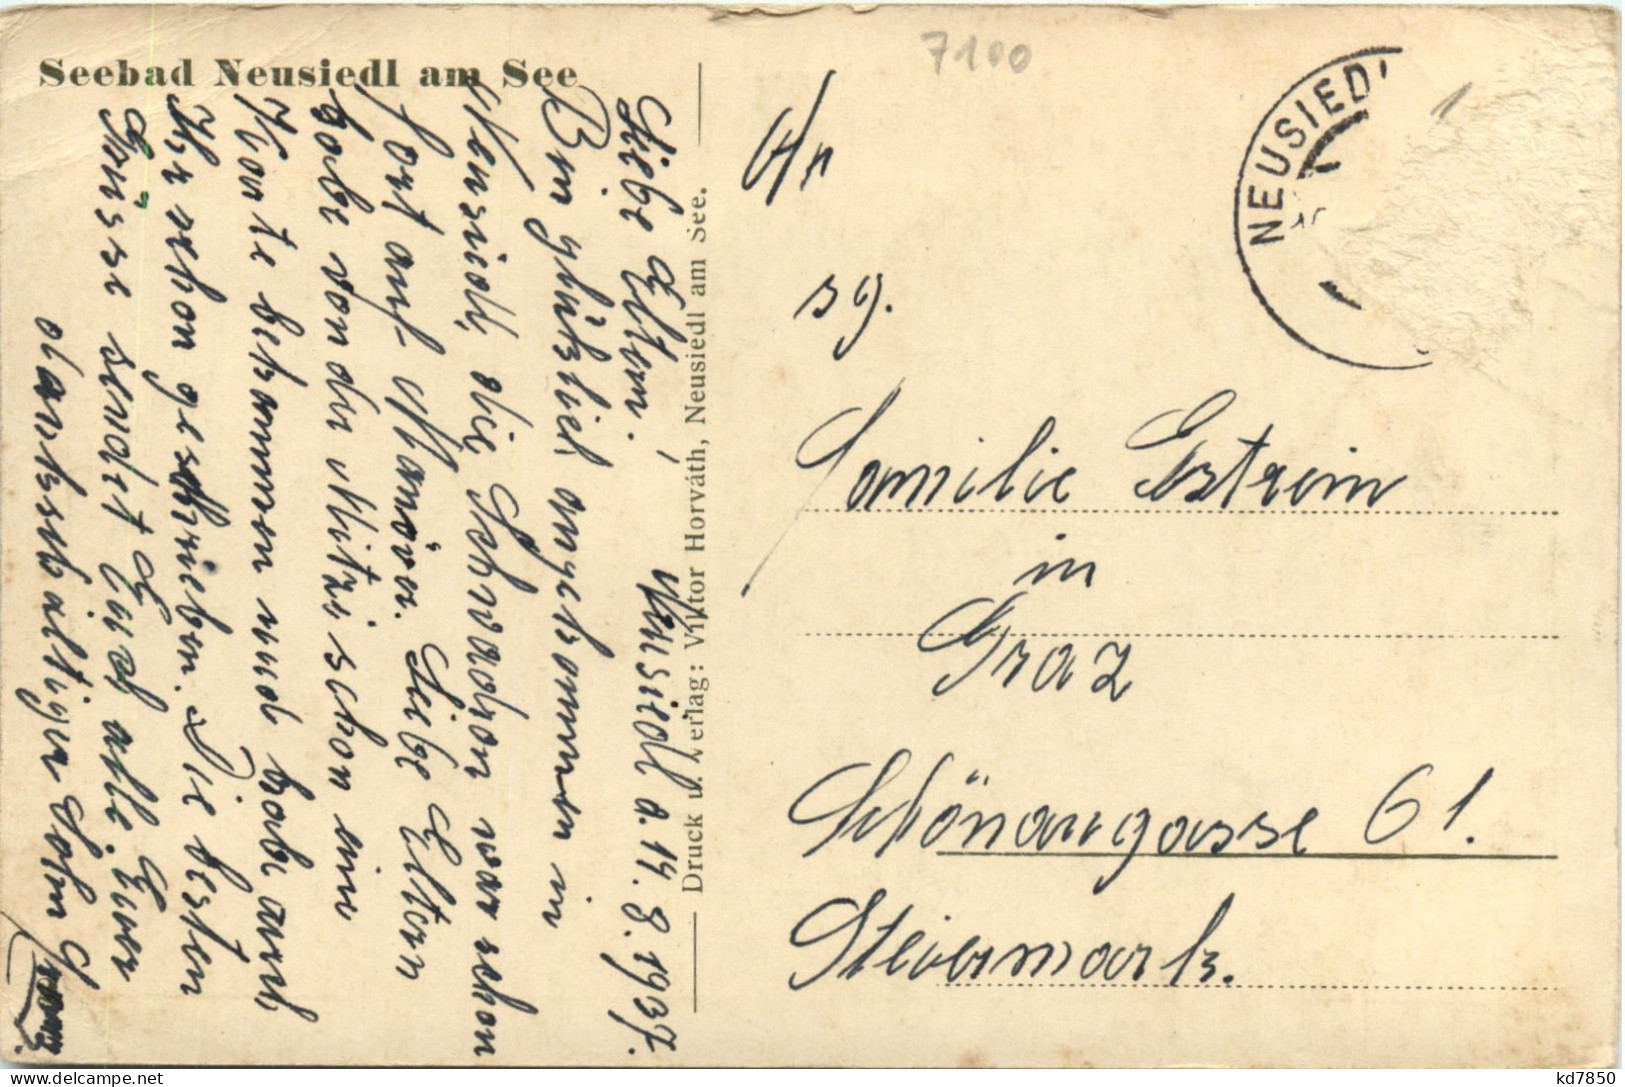 Seebad Neusiedl am See
7100
1
NEUSIEDL
An
sg.
Familie Estrein
in
Graz
Schönaugasse 61.
Steiermark.
Druck u. Verlag: Viktor Horváth, Neusiedl am See.
Neusiedl a. 14. 8. 1937.
Liebe Eltern!
Bin glüklich angekommen in
Neusiedl, die Schwadron war schon
fort auf Manöver. Liebe Eltern
habe von der Mitzi schon eine
Karte bekommen und habe auch
Ihr schon geschrieben. Die besten
Grüsse sendet Euch alle Euer
dankschuldiger Sohn
kd7850